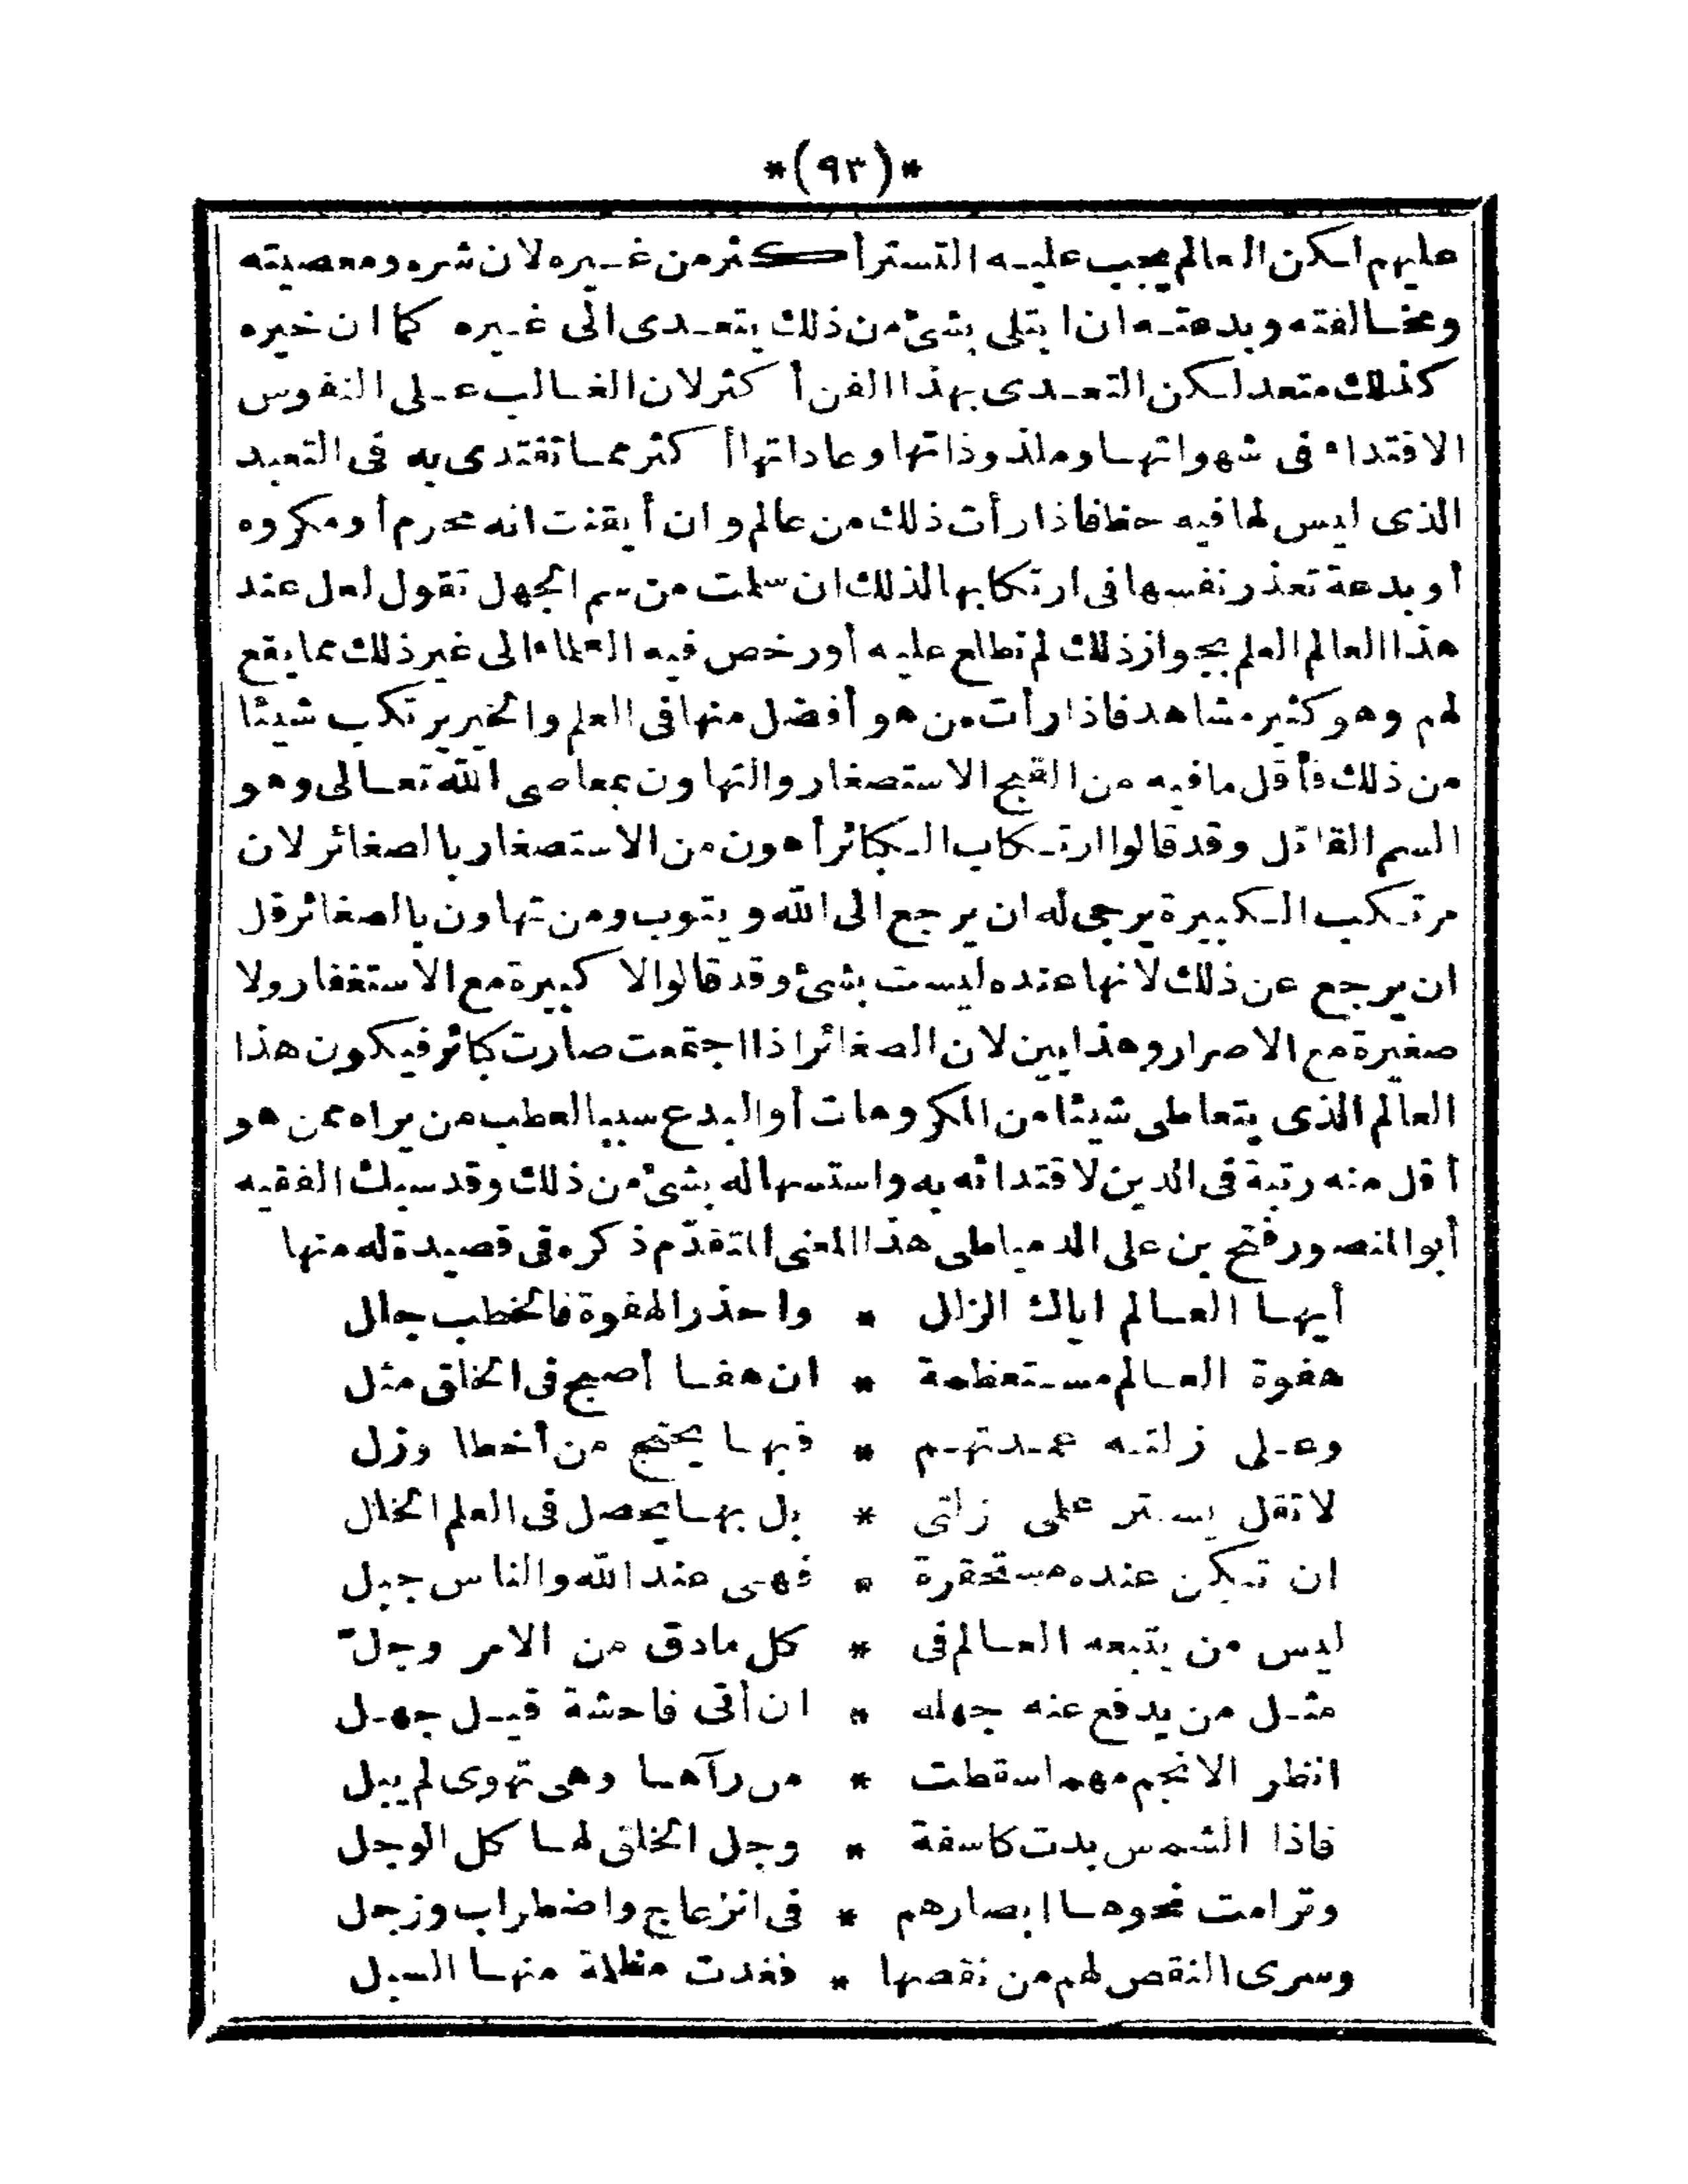 *(٩٣)*
عليهم لكن العالم يجب عليه التستر أكثر من غيره لان شره ومعصيته
ومخالفته وبدعته ان ابتلى بشئ من ذلك يتعدى الى غيره كما ان خيره
كذلك متعد لكن التعدى بهذا الفن أكثر لان الغالب على النفوس
الاقتداء فى شهواتها وملذوذاتها وعاداتها أكثر مما تقتدى به فى التعبد
الذى ليس لها فيه حظ فاذا رأت ذلك من عالم وان أيقنت انه محرم أو مكروه
أو بدعة تعذر نفسها فى ارتكابها لذلك ان سلمت من سم الجهل تقول لعل عند
هذا العالم العلم بجواز ذلك لم نطلع عليه أو رخص فيه العلماء الى غير ذلك مما يقع
لهم وهو كثير مشاهد فاذا رأت من هو أفضل منها فى العلم والخير يرتكب شيئا
من ذلك فأقل ما فيه من القبح الاستصغار والتهاون بمعاصى الله تعالى وهو
السم القاتل وقد قالوا ارتكاب الكبائر أهون من الاستصغار بالصغائر لان
مرتكب الكبيرة يرجى له ان يرجع الى الله ويتوب ومن تهاون بالصغائر قل
ان يرجع عن ذلك لانها عنده ليست بشئ وقد قالوا لا كبيرة مع الاستغفار ولا
صغيرة مع الاصرار وهذا بين لان الصغائر اذا اجتمعت صارت كبائر فيكون هذا
العالم الذى يتعاطى شيئا من المكروهات أو البدع سببا لعطب من يراه ممن هو
أقل منه رتبة فى الدين لاقتدائه به واستسهاله بشئ من ذلك وقد سبك الفقيه
أبو المنصور فتح بن على الدمياطى هذا المعنى المتقدّم ذكره فى قصيدة له منها
أيها العالم اياك الزلل * واحذر الهفوة فالخطب جلل
هفوة العالم مستعظمة * ان هفا أصبح فى الخلق مثل
وعلى زلته عمدتهم * فبها يحتج من أخطا وزل
لا تقل يستر على زلتى * بل بها يحصل فى العلم الخلل
ان تكن عنده مستحقرة * فهى عند الله والناس جبل
ليس من يتبعه العالم فى * كل مادق من الامر وجلّ
مثل من يدفع عنه جهله * ان أتى فاحشة قيل جهل
انظر الانجم مهما سقطت * من رآها وهى تهوى لم يبل
فاذا الشمس بدت كاسفة * وجل الخلق لها كل الوجل
وترامت نحوها ابصارهم * فى انزعاج واضطراب وزجل
وسرى النقص لهم من نقصها * فغدت مظلمة منها السبل